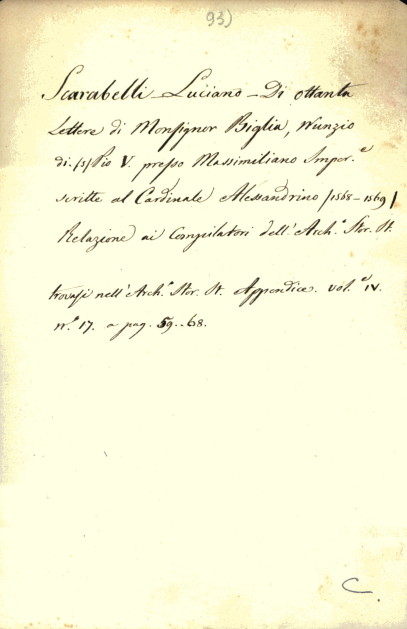 93)
Scarabelli Luciano - Di ottanta
Lettere di Monsignor Biglia, Nunzio
di /S/ Pio V. presso Massimiliano Imper.e
scritte al Cardinale Alessandrino /1568-1569/
Relazione ai Compilatori dell'Arch.o Stor. It.
trovasi nell'Arch.o Stor. It. Appendice. vol.e IV.
n.o 17. a pag. 59..68.
C.